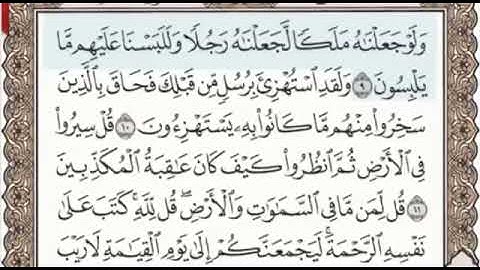 وَلَوْ جَعَلْنَـٰهُ مَلَكًا لَّجَعَلْنَـٰهُ رَجُلًا وَلَلَبَسْنَا عَلَيْهِم مَّا
يَلْبِسُونَ ٩ وَلَقَدِ ٱسْتُهْزِئَ بِرُسُلٍ مِّن قَبْلِكَ فَحَاقَ بِٱلَّذِينَ
سَخِرُوا۟ مِنْهُم مَّا كَانُوا۟ بِهِۦ يَسْتَهْزِءُونَ ١٠ قُلْ سِيرُوا۟
فِى ٱلْأَرْضِ ثُمَّ ٱنظُرُوا۟ كَيْفَ كَانَ عَـٰقِبَةُ ٱلْمُكَذِّبِينَ
١١ قُل لِّمَن مَّا فِى ٱلسَّمَـٰوَٰتِ وَٱلْأَرْضِ ۖ قُل لِّلَّهِ ۚ كَتَبَ عَلَىٰ
نَفْسِهِ ٱلرَّحْمَةَ ۚ لَيَجْمَعَنَّكُمْ إِلَىٰ يَوْمِ ٱلْقِيَـٰمَةِ لَا رَيْبَ